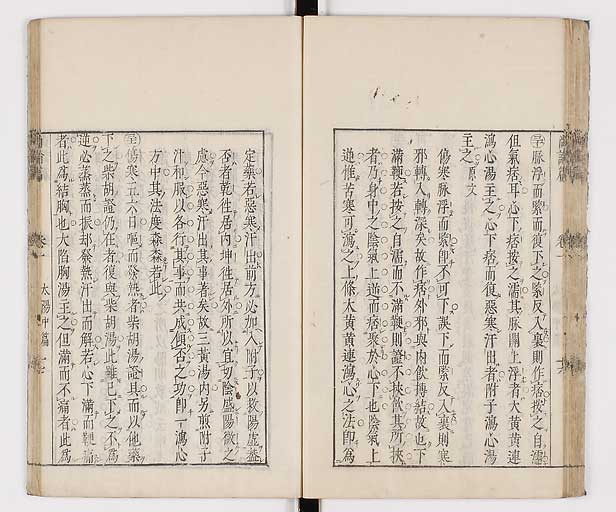 脉浮而緊而復下之緊反入裏則作痞按之自濡
但氣痞耳心下痞按之濡其脉關上浮者大黄黄連
瀉心湯主之心下痞而復惡寒汗出者附子瀉心湯
主之原文
傷寒脉浮而緊即不可下誤下而緊反入裏則寒
邪轉入轉深矣故作痞外邪與内飲搏結故心下
滿鞕若按之自濡而不滿鞕則證不挾飲其所挾
者乃身中之陰氣上逆而痞聚於心下也陰氣上
逆惟苦寒可瀉之上條大黄黄連瀉心之法即爲
定藥若惡寒汗出前方必加入附子以救陽虚蓋
否者乾往居内坤往居外所以宜切陰盛陽微之
慮今惡寒汗出其事著矣故三黄湯内另煎附子
汁和服以各行其事而共成傾否之功即一瀉心
方中其法度森森若此
傷寒五六日嘔而發熱者柴胡湯證具而以他藥
下之柴胡證仍在者復與柴胡湯此雖已下之不爲
逆必蒸蒸而振却發熱汗出而解若心下滿而鞕痛
者此爲結胸也大陷胸湯主之但滿而不痛者此爲
卷一
太陽中篇